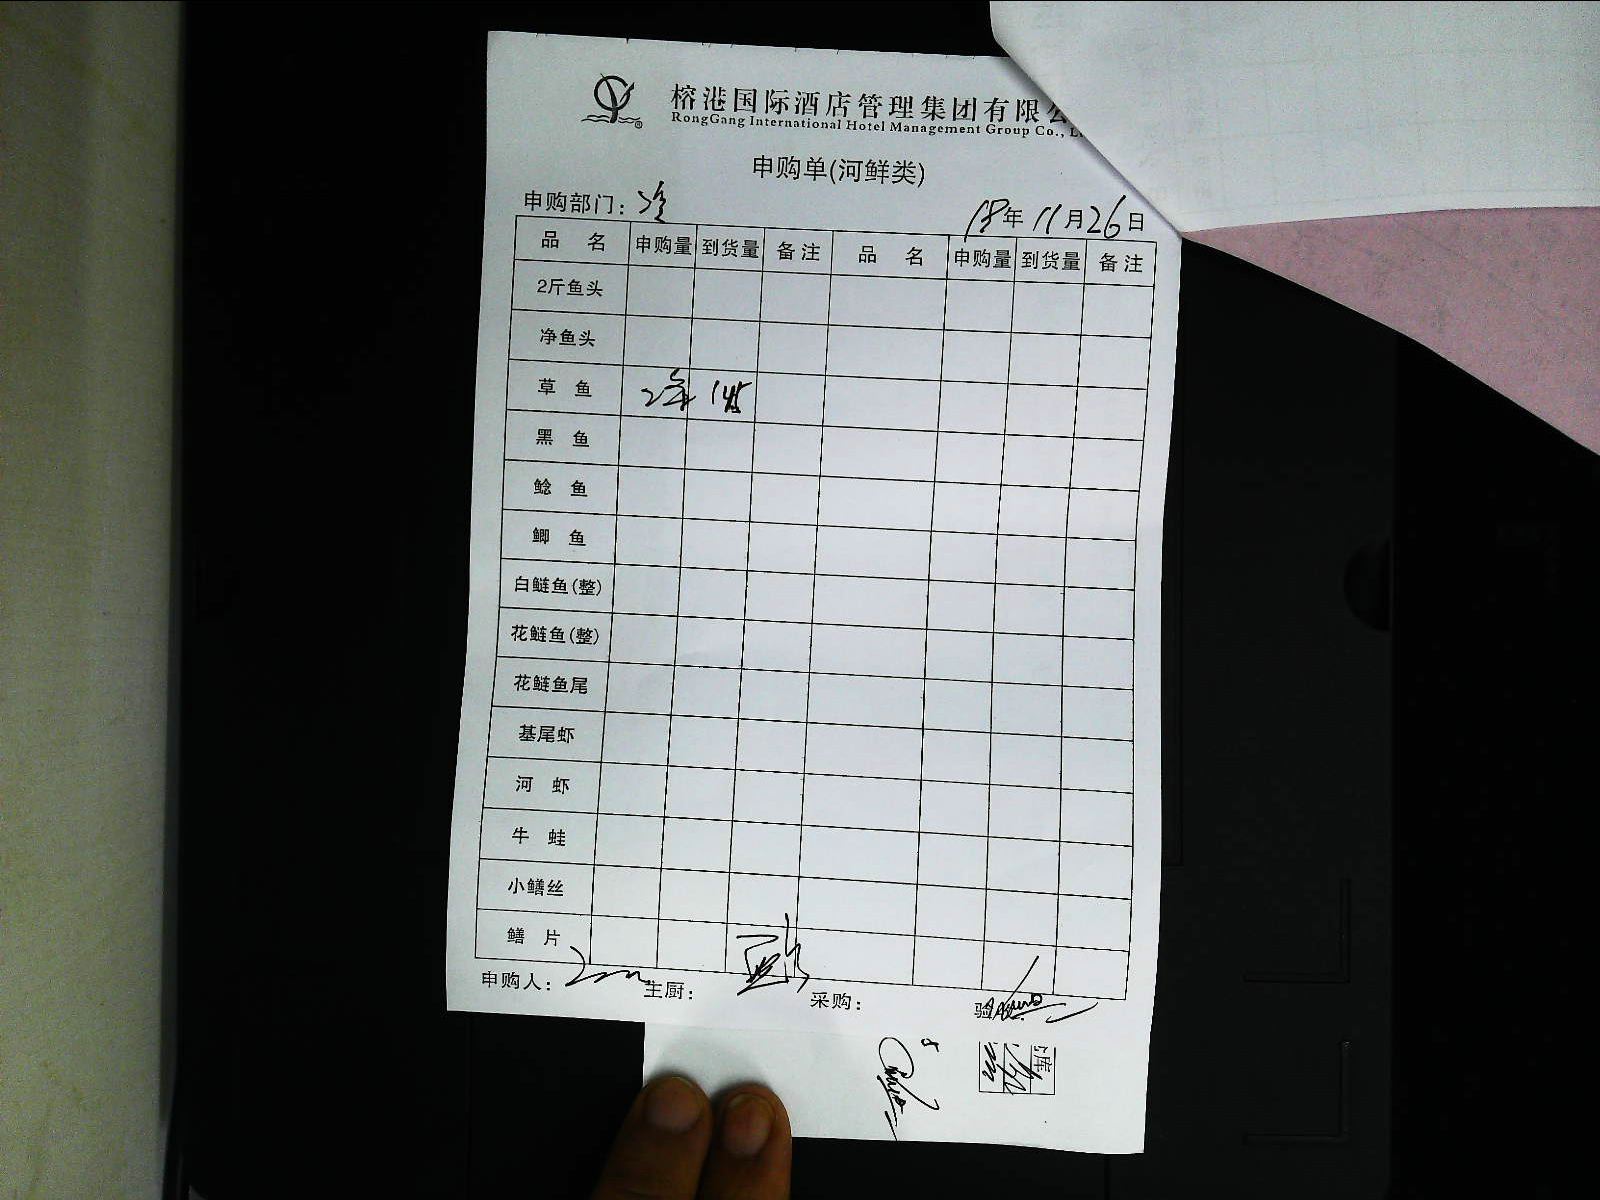 榕港国际酒店管理集团有限
RongGang International Hotel Management Group Co.,
申购单(河鲜类)
申购部门: 冷
18年11月26日
品 名 申购量 到货量 备注 品 名 申购量 到货量 备注
2斤鱼头
净鱼头
草 鱼 2条
黑 鱼
鲶 鱼
鲫 鱼
白鲢鱼(整)
花鲢鱼(整)
花鲢鱼尾
基尾虾
河 虾
牛 蛙
小鳝丝
鳝 片
申购人: 主厨: 采购: 验
库